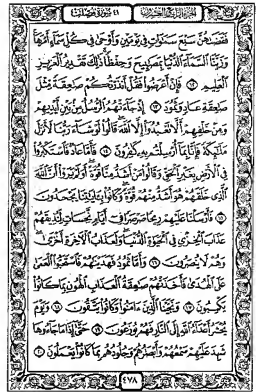 الجزء الرابع والعشرون ٤١ سورة فصلت
فَقَضَىٰهُنَّ سَبْعَ سَمَٰوَاتٍ فِي يَوْمَيْنِ وَأَوْحَىٰ فِي كُلِّ سَمَآءٍ أَمْرَهَا
وَزَيَّنَّا ٱلسَّمَآءَ ٱلدُّنْيَا بِمَصَٰبِيحَ وَحِفْظًا ذَٰلِكَ تَقْدِيرُ ٱلْعَزِيزِ
ٱلْعَلِيمِ ١٢ فَإِنْ أَعْرَضُوا۟ فَقُلْ أَنذَرْتُكُمْ صَٰعِقَةً مِّثْلَ
صَٰعِقَةِ عَادٍ وَثَمُودَ ١٣ إِذْ جَآءَتْهُمُ ٱلرُّسُلُ مِنۢ بَيْنِ أَيْدِيهِمْ
وَمِنْ خَلْفِهِمْ أَلَّا تَعْبُدُوٓا۟ إِلَّا ٱللَّهَ قَالُوا۟ لَوْ شَآءَ رَبُّنَا لَأَنزَلَ
مَلَٰٓئِكَةً فَإِنَّا بِمَآ أُرْسِلْتُم بِهِۦ كَٰفِرُونَ ١٤ فَأَمَّا عَادٌ فَٱسْتَكْبَرُوا۟
فِي ٱلْأَرْضِ بِغَيْرِ ٱلْحَقِّ وَقَالُوا۟ مَنْ أَشَدُّ مِنَّا قُوَّةً أَوَلَمْ يَرَوْا۟ أَنَّ ٱللَّهَ
ٱلَّذِي خَلَقَهُمْ هُوَ أَشَدُّ مِنْهُمْ قُوَّةً وَكَانُوا۟ بِـَٔايَٰتِنَا يَجْحَدُونَ
١٥ فَأَرْسَلْنَا عَلَيْهِمْ رِيحًا صَرْصَرًا فِيٓ أَيَّامٍ نَّحِسَاتٍ لِّنُذِيقَهُمْ
عَذَابَ ٱلْخِزْيِ فِي ٱلْحَيَوٰةِ ٱلدُّنْيَا وَلَعَذَابُ ٱلْأَخِرَةِ أَخْزَىٰ
وَهُمْ لَا يُنصَرُونَ ١٦ وَأَمَّا ثَمُودُ فَهَدَيْنَٰهُمْ فَٱسْتَحَبُّوا۟ ٱلْعَمَىٰ
عَلَى ٱلْهُدَىٰ فَأَخَذَتْهُمْ صَٰعِقَةُ ٱلْعَذَابِ ٱلْهُونِ بِمَا كَانُوا۟
يَكْسِبُونَ ١٧ وَنَجَّيْنَا ٱلَّذِينَ ءَامَنُوا۟ وَكَانُوا۟ يَتَّقُونَ ١٨ وَيَوْمَ
يُحْشَرُ أَعْدَآءُ ٱللَّهِ إِلَى ٱلنَّارِ فَهُمْ يُوزَعُونَ ١٩ حَتَّىٰٓ إِذَا مَا جَآءُوهَا
شَهِدَ عَلَيْهِمْ سَمْعُهُمْ وَأَبْصَٰرُهُمْ وَجُلُودُهُم بِمَا كَانُوا۟ يَعْمَلُونَ ٢٠
٤٧٨